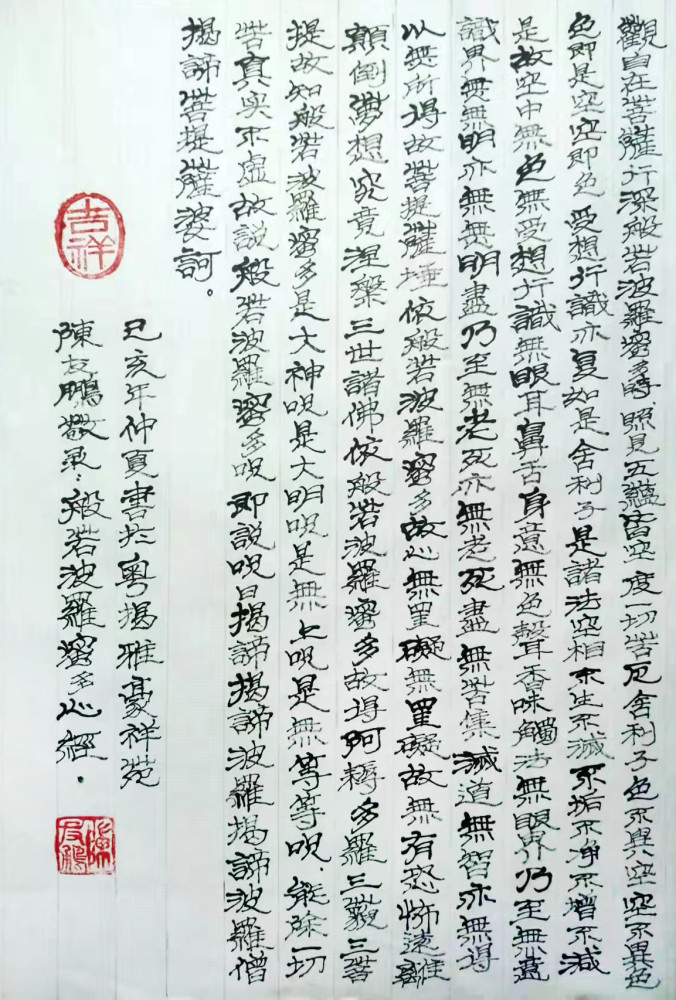 觀自在菩薩行深般若波羅蜜多時照見五蘊皆空度一切苦厄舍利子色不異空空不異色
色即是空空即色受想行識亦复如是舍利子是諸法空相不生不滅不垢不淨不增不減
是故空中無色無受想行識無眼耳鼻舌身意無色聲香味觸法無眼界乃至無意
識界無無明亦無無明盡乃至無老死亦無老死盡無苦集滅道無智亦無得
以無所得故菩提薩埵依般若波羅蜜多故心無罣礙無罣礙故無有恐怖遠離
顛倒夢想究竟涅槃三世諸佛依般若波羅蜜多故得阿耨多羅三藐三菩
提故知般若波羅蜜多是大神呪是大明呪是無上呪是無等等呪．能除一切
苦真实不虛故説般若波羅蜜多呪即説呪曰揭諦揭諦波羅揭諦波羅僧
揭諦菩提薩婆訶。
吉祥
己亥年仲夏書於粵揭雅豪祥苑
陳友鵬敬录：般若波羅蜜多心經．
陳友鵬